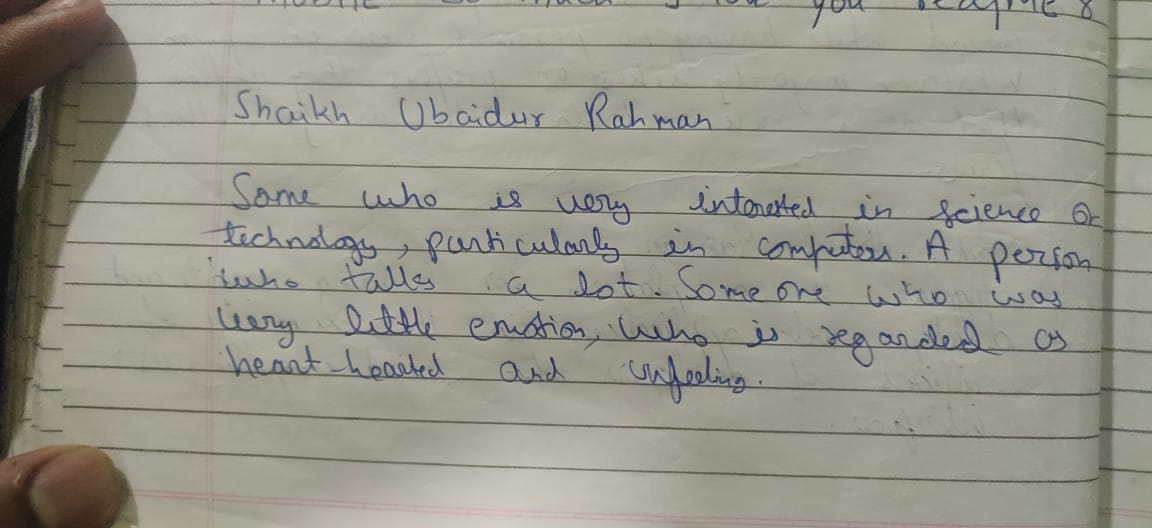 you
Shaikh Ubaidur Rahman
Same who is very interested in science or
technology, particularly in computers. A person
who talks a lot. Some one who was
very little emotion, who is regarded as
heart-hearted and unfeeling.